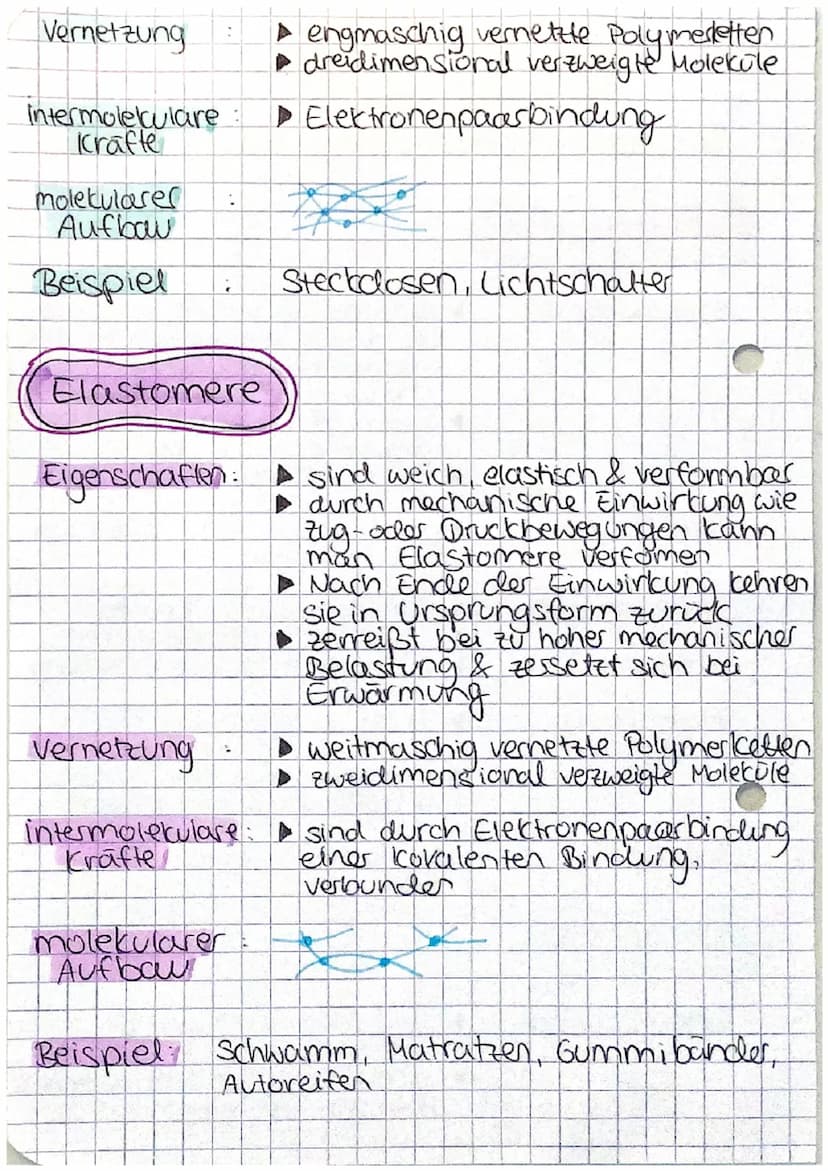 Vernetzung : ▶ engmaschig vernetzte Polymerketten
▶ dreidimensional verzweigte Moleküle
intermolekulare : ▶ Elektronenpaarbindung
Kräfte
molekularer :
Aufbau
Beispiel : Steckdosen, Lichtschalter
Elastomere
Eigenschaften: ▶ sind weich, elastisch & verformbar
▶ durch mechanische Einwirkung wie
Zug- oder Druckbewegungen kann
man Elastomere verfomen
▶ Nach Ende der Einwirkung kehren
sie in Ursprungsform zurück
▶ zerreißt bei zu hoher mechanischer
Belastung & zersetzt sich bei
Erwärmung
Vernetzung : ▶ weitmaschig vernetzte Polymerketten
▶ zweidimensional verzweigte Moleküle
intermolekulare: ▶ sind durch Elektronenpaarbindung
Kräfte einer kovalenten Bindung,
verbunden
molekularer :
Aufbau
Beispiel: Schwamm, Matratzen, Gummibänder,
Autoreifen